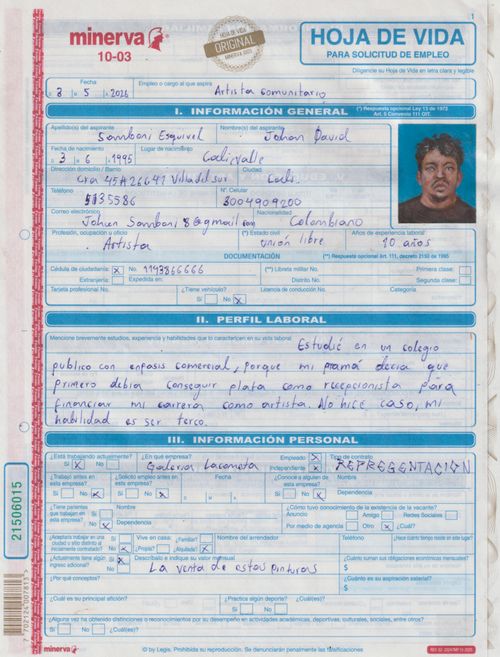 minerva
10-03
HOJA DE VIDA
ORIGINAL
MINERVA 1025
1
HOJA DE VIDA
PARA SOLICITUD DE EMPLEO
Diligencie su Hoja de Vida en letra clara y legible
Fecha
3 5 2026
Empleo o cargo al que aspira
Artista comunitario
I. INFORMACIÓN GENERAL
(*) Respuesta opcional Ley 13 de 1972
Art. 5 Convenio 111 OIT.
Apellido(s) del aspirante
Samboni Esquivel
Nombre(s) del aspirante
Johan David
Fecha de nacimiento
3 6 1995
Lugar de nacimiento
Cali valle
Dirección domicilio / Barrio
Cra 45A 26641 Villa del sur
Ciudad
Cali.
Teléfono
5135586
N°. Celular
3004909200
Correo electrónico
Johan Samboni 8@gmail com
Nacionalidad
Colombiano
Profesión, ocupación u oficio
Artista
(*) Estado civil
unión libre
Años de experiencia laboral
10 años
DOCUMENTACIÓN
(**) Respuesta opcional Art. 111, decreto 2150 de 1995
Cédula de ciudadanía: X No. 1193866666
(**) Libreta militar No.
Primera clase:
Extranjería: Expedida en:
Distrito No.
Segunda clase:
Tarjeta profesional No.
¿Tiene vehículo?
Sí No X
Licencia de conducción No.
Categoría
II. PERFIL LABORAL
Mencione brevemente estudios, experiencia y habilidades que lo caractericen en su vida laboral
Estudié en un colegio
publico con enfasis comercial, porque mi mamá decia que
primero debia conseguir plata como recepcionista para
financiar mi carrera como artista. No hice caso, mi
habilidad es ser terco.
III. INFORMACIÓN PERSONAL
¿Está trabajando actualmente?
Sí X No
¿En qué empresa?
Galeria Lacometa
Empleado X
Independiente X
Tipo de contrato
REPRESENTACION
¿Trabajó antes en esta empresa?
Sí No X
¿Solicitó empleo antes en esta empresa?
Sí No X
Fecha
¿Conoce a alguien de esta empresa?
Sí No
Nombre
Dependencia
¿Tiene parientes que trabajen en esta empresa?
Sí
No X
Nombre
Dependencia
¿Cómo tuvo conocimiento de la existencia de la vacante?
Anuncio Amigo Redes Sociales
Por medio de agencia Otro X ¿Cuál?
¿Aceptaría trabajar en otra ciudad o sitio distinto al inicialmente contratado?
Sí
No X
Vive en casa: ¿Familiar?
¿Propia? ¿Alquilada? X
Nombre del arrendador
Teléfono
¿Hace cuánto tiempo reside en este lugar?
¿Actualmente tiene algún ingreso adicional?
Sí X
No
Descríbalo e indique su valor mensual
La venta de estas pinturas
¿Cuánto suman sus obligaciones económicas mensuales?
$
¿Por qué conceptos?
¿Cuánto es su aspiración salarial?
$
¿Cuál es su principal afición?
¿Practica algún deporte?
Sí No
¿Cuál(es)?
¿Alguna vez ha obtenido distinciones o reconocimientos por su desempeño en actividades académicas, deportivas, culturales, sociales, entre otros?
Sí No ¿Cuál(es)?
minerva
© by Legis. Prohibida su reproducción. Se denunciarán penalmente las falsificaciones
21506015
7702124007813